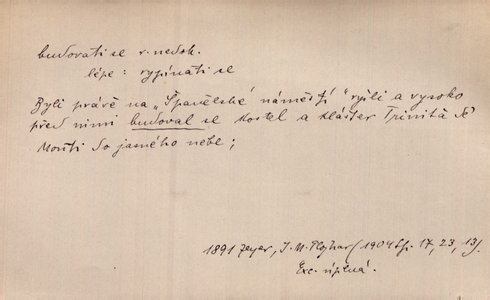 budovati se v. nedok.
lépe: vypínati se
Byli právě na „Španělské náměstí“ vyšli a vysoko
před nimi budoval se kostel a klášter Trinità de'
Monti do jasného nebe;
1891 Zeyer, J. M. Plojhar (1904 Sp. 17, 23, 13).
Exc. úplná.